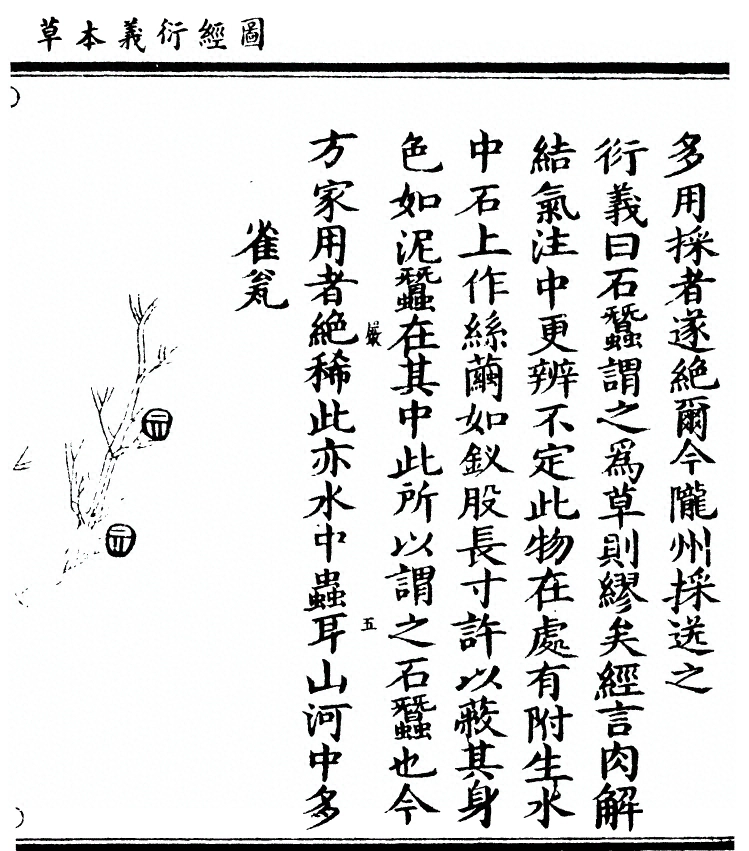 圖經衍義本草
多用採者遂絶爾今隴州採送之
衍義曰石蠶謂之爲草則繆矣經言肉解
結氣注中更辨不定此物在處有附生水
中石上作絲繭如釵股長寸許以蔽其身
色如泥蠶在其中此所以謂之石蠶也今
嚴 五
方家用者絶稀此亦水中蟲耳山河中多
雀瓮